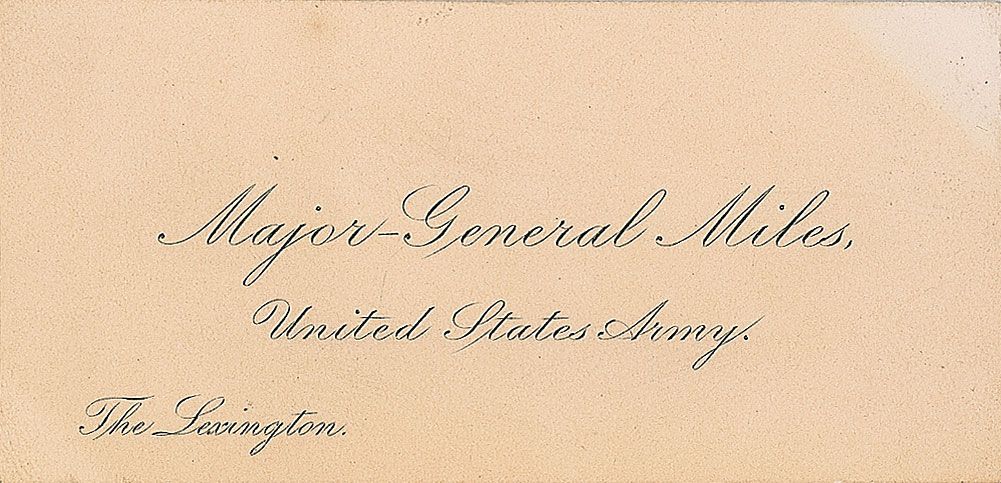 Major-General Miles,
United States Army.
The Lexington.